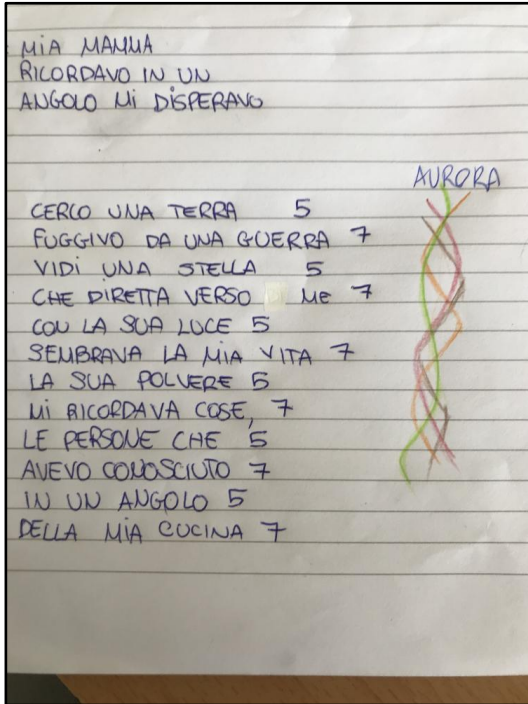 MIA MAMMA
RICORDAVO IN UN
ANGOLO MI DISPERAVO
AURORA
CERCO UNA TERRA 5
FUGGIVO DA UNA GUERRA 7
VIDI UNA STELLA 5
CHE DIRETTA VERSO ME 7
CON LA SUA LUCE 5
SEMBRAVA LA MIA VITA 7
LA SUA POLVERE 5
MI RICORDAVA COSE, 7
LE PERSONE CHE 5
AVEVO CONOSCIUTO 7
IN UN ANGOLO 5
DELLA MIA CUCINA 7